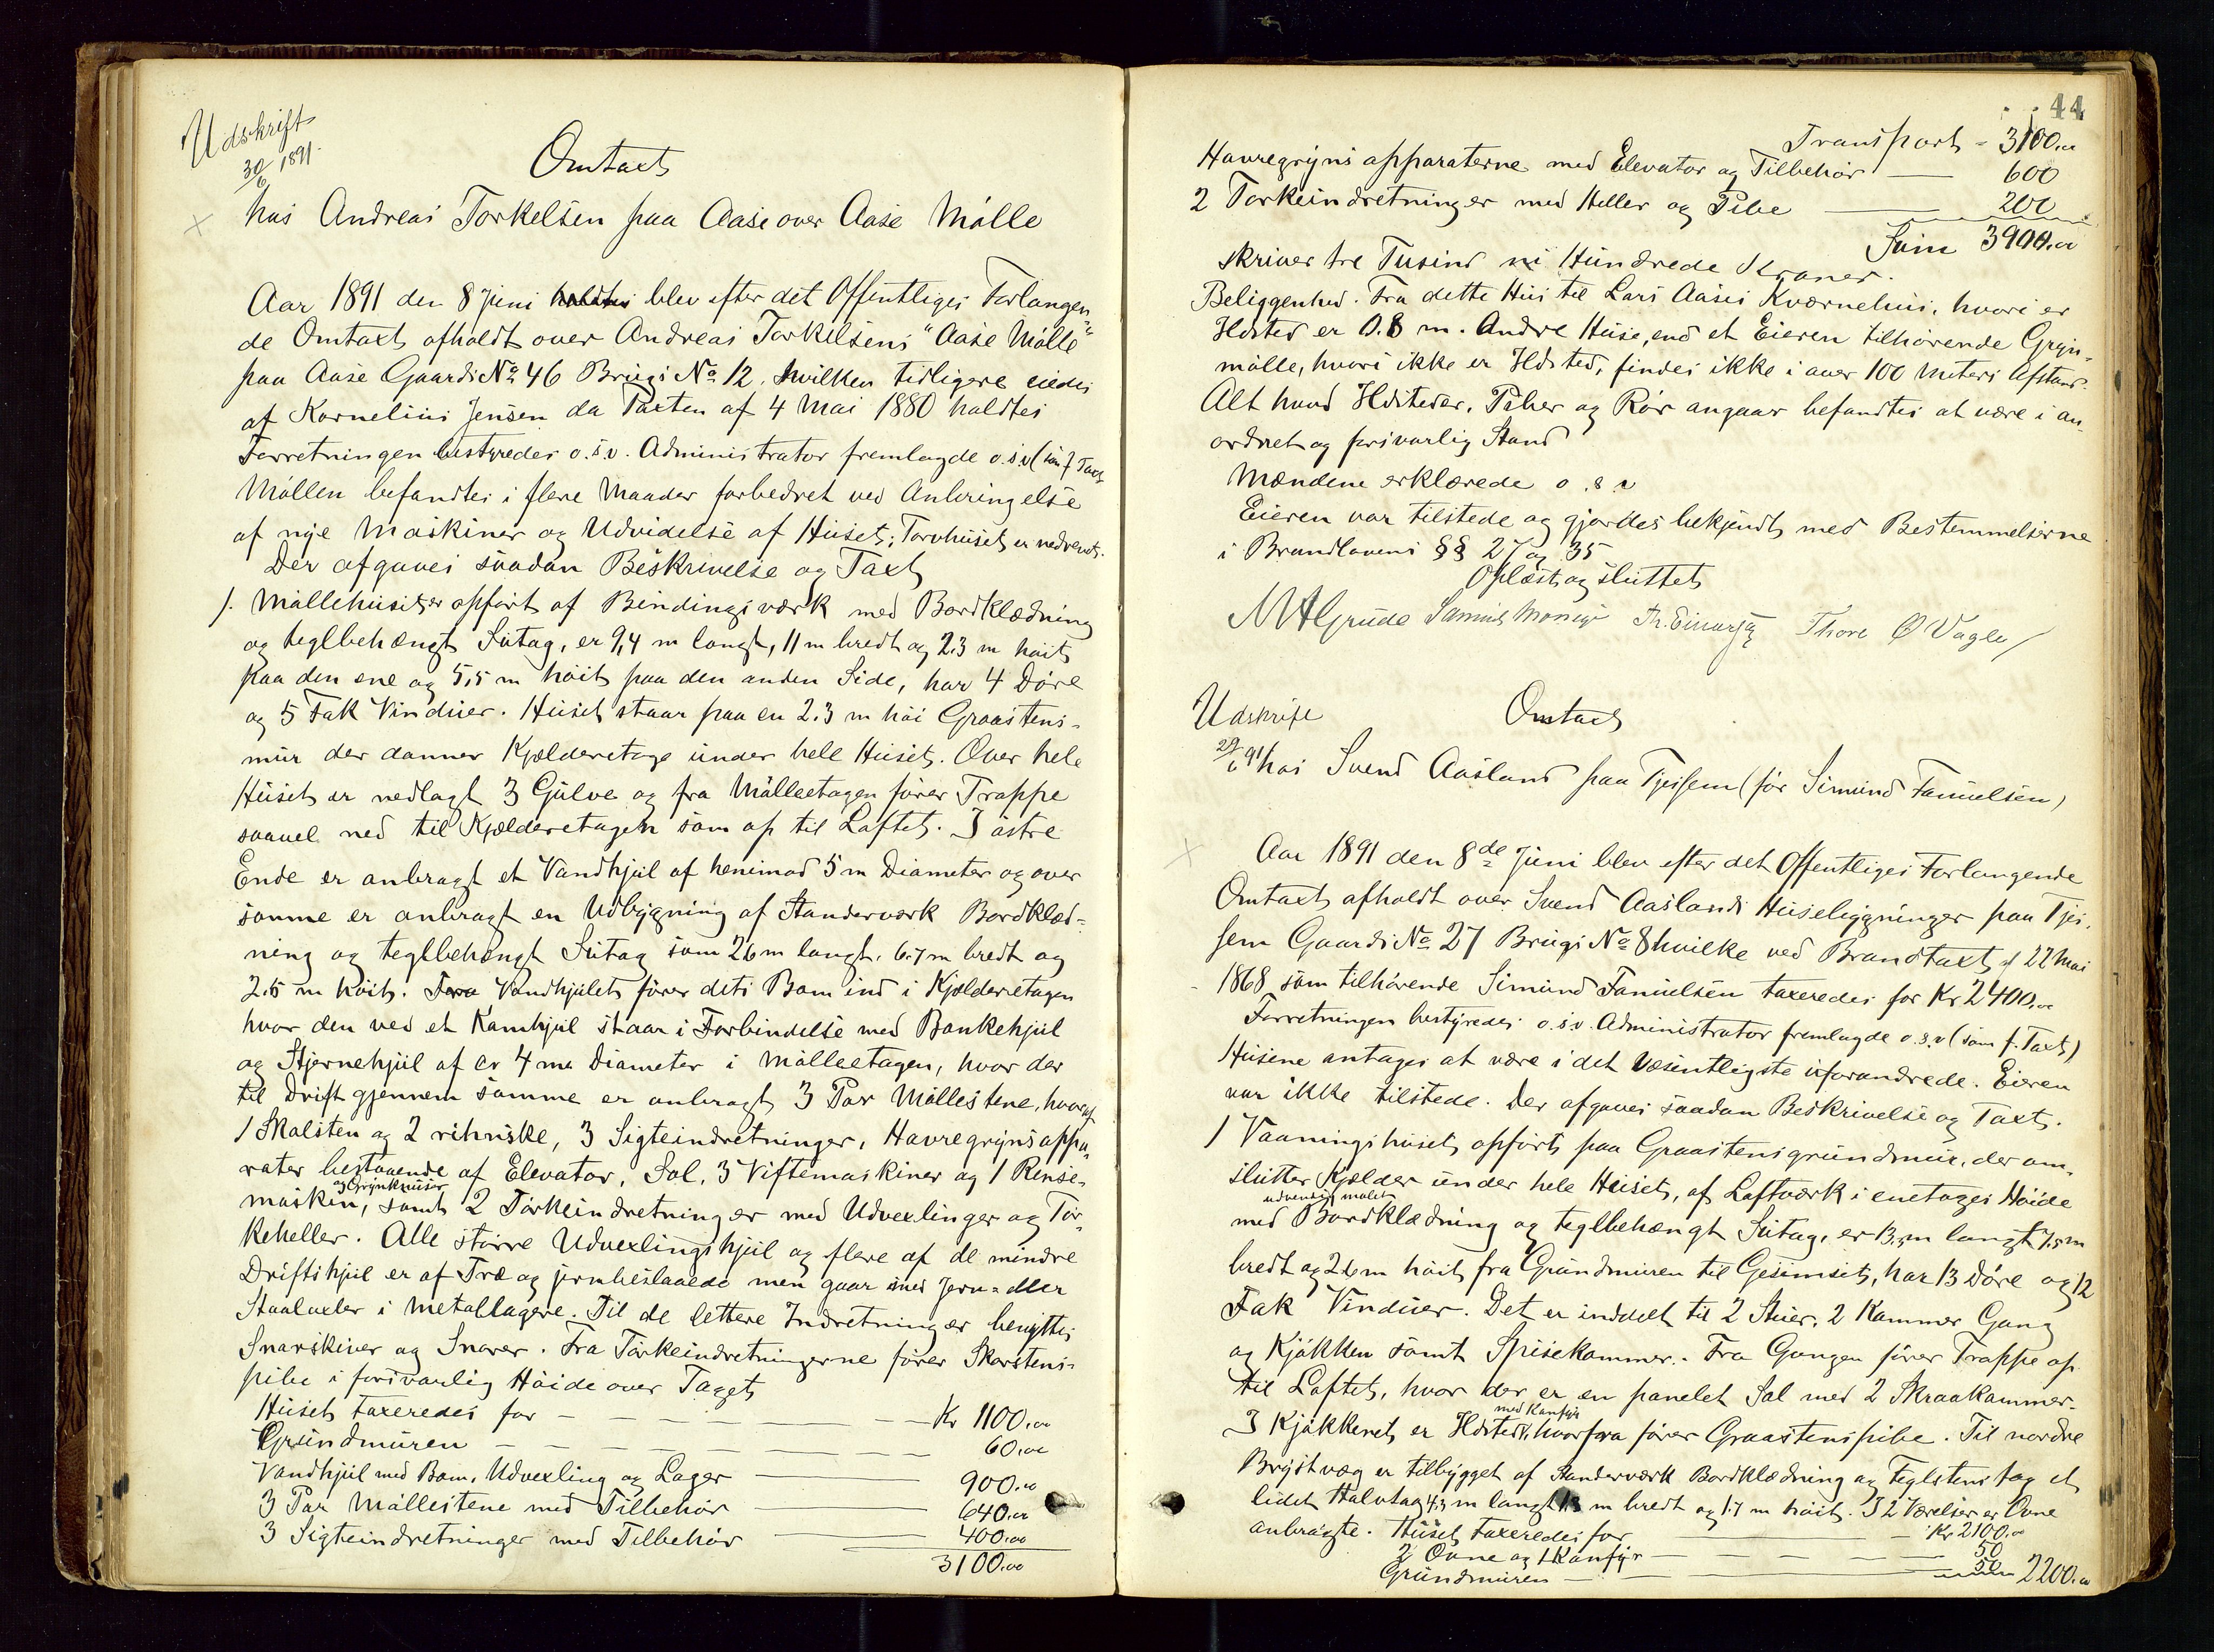 Udskrift
30/6 1891.
Omtaxt
hos Andreas Torkelsen paa Aase over Aase Mølle
Aar 1891 den 8 Juni blev efter det Offentliges Forlangen-
de Omtaxt afholdt over Andreas Torkelsens "Aase Mølle"
paa Aase Gaards No 46 Brugs No 12, hvilken tidligere eiedes
af Kornelius Jensen da Taxten af 4 Mai 1880 holdtes
Forretningen bestyredes o.s.v. Administrator fremlagde o.s.v (som f. Taxt)
Møllen befandtes i flere Maader forbedret ved Anbringelse
af nye Maskiner og Udvidelse af Huset; Torvhuset er nedrevet.
Der afgaves saadan Beskrivelse og Taxt
1. Møllehuset er opført af Bindingsværk med Bordklædning
og teglbehængt Sutag, er 9,4 m langt, 11 m bredt og 2.3 m høit
paa den ene og 5,5 m høit paa den anden Side, har 4 Døre
og 5 Fak Vinduer. Huset staar paa en 2.3 m høi Graastens-
mur der danner Kjælderetage under hele Huset. Over hele
Huset er nedlagt 3 Gulve og fra Mølleetagen fører Trappe
saavel ned til Kjælderetagen som op til Loftet. I østre
Ende er anbragt et Vandhjul af henimod 5 m Diameter og over
samme er anbragt en Udbygning af Standerværk Bordklæd-
ning og teglbehængt Sutag som 2.6 m langt, 6.7 m bredt og
2.5 m høit. Fra Vandhjulet fører dets Bom ind i Kjælderetagen
hvor den ved et Kamhjul staar i Forbindelse med Bankehjul
og Stjernehjul af cr 4 m Diameter i Mølleetagen, hvor der
til Drift gjennem samme er anbragt 3 Par Møllestene, hvoraf
1 Skalsten og 2 rihnske, 3 Sigteindretninger, Havregrynsappa-
rater bestaaende af Elevator, Sol, 3 Viftemaskiner og 1 Rense-
og Grynknuser
maskin, samt 2 Tørkeindretninger med Udvexlinger og Tør-
keheller. Alle større Udvexlingshjul og flere af de mindre
Driftshjul er af Træ og jernbeslaaede men gaar med Jern- eller
Staalaxler i Metallagere. Til de lettere Indretninger benyttes
Snorskiver og Snorer. Fra Tørkeindretningerne fører Skorstens-
pibe i forsvarlig Høide over Taget
Huset taxeredes for — Kr 1100.00
Grundmuren — 60.00
Vandhjul med Bom, Udvexling og Lager — 900.00
3 Par Møllestene med Tilbehør — 640.00
3 Sigteindretninger med Tilbehør — 400.00
3100.00
44
Transport - 3100.00
Havregryns apparaterne med Elevator og Tilbehør — 600
2 Tørkeindretninger med Heller og Pibe — 200
Sum 3900.00
skriver tre Tusind ni Hundrede Kroner.
Beliggenhed. Fra dette Hus til Lars Aases Kværnehus, hvori er
Ildsted er 0.8 m. Andre Huse, end et Eieren tilhørende Gryn-
mølle, hvori ikke er Ildsted, findes ikke i over 100 Meters Afstand.
Alt hvad Ildsteder, Piber og Rør angaar befandtes at være i an-
ordnet og forsvarlig Stand
Mændene erklærede o.s.v
Eieren var tilstede og gjordes bekjendt med Bestemmelserne
i Brandlovens §§ 27 og 35
Oplæst og sluttet
Grude Th. Einarsen Thore O Vagle
Udskrift
29/6 91
Omtaxt
hos Svend Aasland paa Tjessem (før Simund Tanuelsen)
Aar 1891 den 8de Juni blev efter det Offentliges Forlangende
Omtaxt afholdt over Svend Aaslands Huseligninger paa Tjes-
sem Gaards No 27 Brugs No 8 hvilke ved Brandtaxt af 22 Mai
1868 som tilhørende Simund Tanuelsen taxeredes for Kr 2400.00
Forretningen bestyredes o.s.v. Administrator fremlagde o.s.v (som f. Taxt)
Husene antages at være i det væsentligste uforandrede. Eieren
var ikke tilstede. Der afgaves saadan Beskrivelse og Taxt.
1 Vaaningshuset opført paa Graastensgrundmur, der om-
slutter Kjælder under hele Huset, af Loftværk i enetages Høide
udvendig malet
med Bordklædning og teglbehængt Sutag, er 13.5 m langt 7.5 m
bredt og 2.6 m høit fra Grundmuren til Gesimset, har 13 Døre og 12
Fak Vinduer. Det er inddelt til 2 Stuer, 2 Kammer Gang
og Kjøkken samt Spisekammer. Fra Gangen fører Trappe op
til Loftet, hvor der er en panelet Sal med 2 Skraakammer.
med Komfyr
I Kjøkkenet er Ildsted, hvorfra fører Graastenspibe. Til nordre
Brystvæg er tilbygget af Standerværk Bordklædning og Teglstenstag et
lidet Halvtag 4.3 m langt 1.3 m bredt og 1.7 m høit. I 2 Værelser er Ovne
anbragte. Huset taxeredes for — Kr 2100.00
2 Ovne og 1 Komfyr — 50
Grundmuren — 50 2200.00